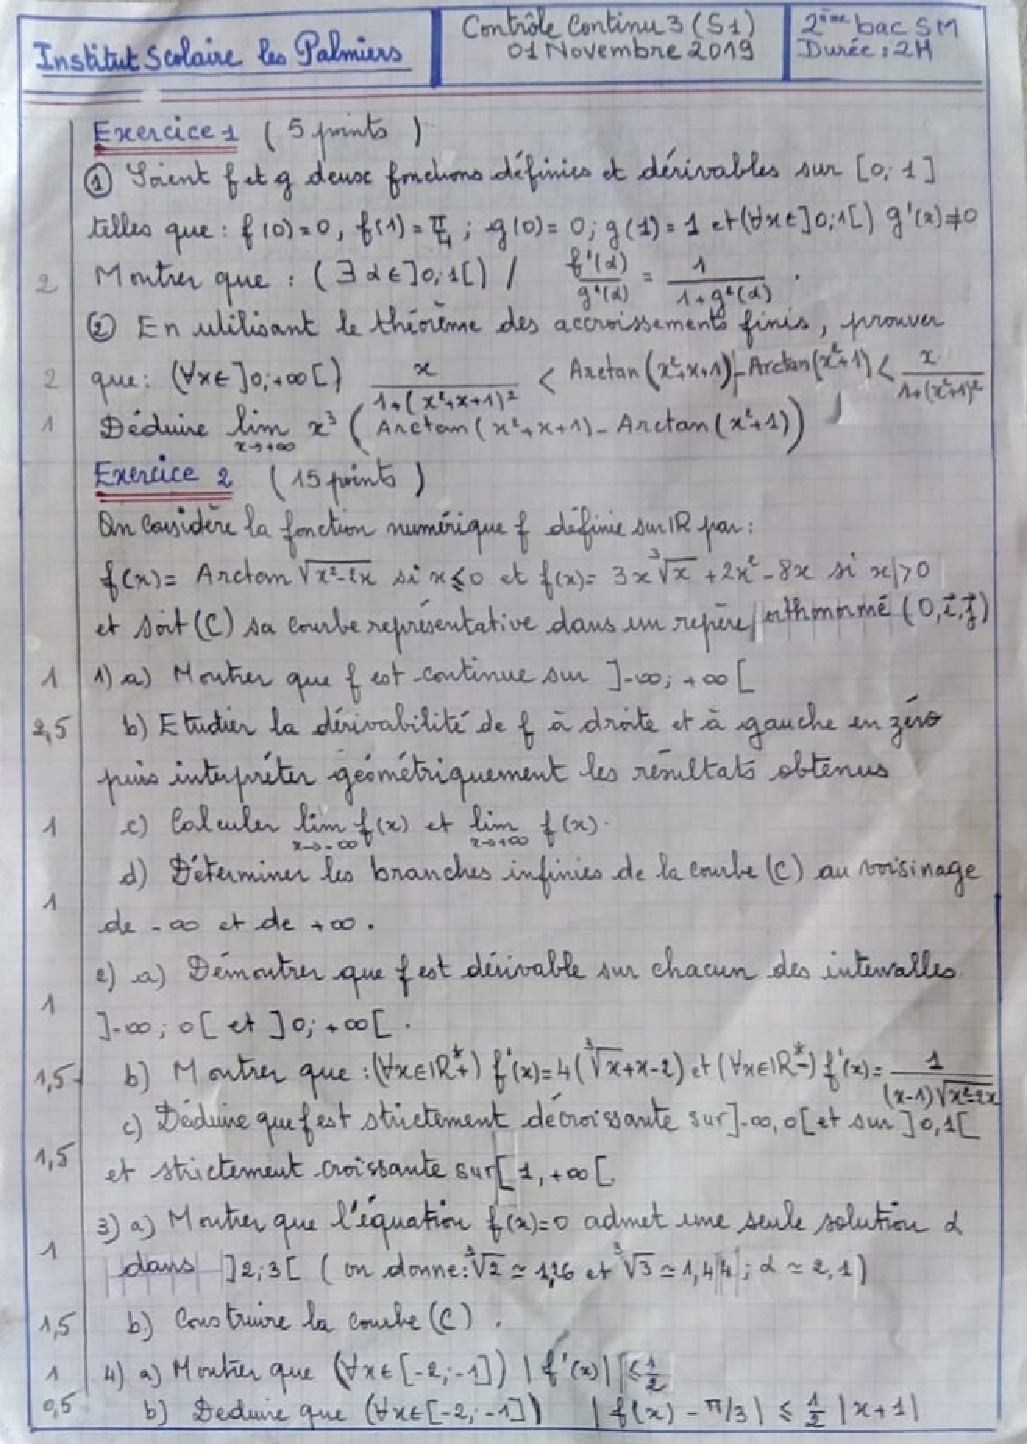 Institut Scolaire les Palmiers
Contrôle Continu 3 (S1)
01 Novembre 2019
2ème bac SM
Durée : 2H
Exercice 1 ( 5 points )
① Soient f et g deux fonctions définies et dérivables sur [0; 1]
telles que : f(0)=0, f(1)=π/4 ; g(0)=0; g(1)=1 et (∀x∈]0;1[) g'(x)≠0
2 Montrer que : (∃α∈]0;1[) / f'(α)/g'(α) = 1/(1+g²(α)) .
② En utilisant le théorème des accroissements finis, prouver
2 que : (∀x∈]0;+∞[) x/(1+(x²+x+1)²) < Arctan(x²+x+1)-Arctan(x²+1) < x/(1+(x²+1)²)
1 Déduire lim x→+∞ x³(Arctan(x²+x+1)-Arctan(x²+1))
Exercice 2 ( 15 points )
On considère la fonction numérique f définie sur IR par :
f(x)= Arctan √(x²-2x) si x≤0 et f(x)= 3x∛x +2x²-8x si x>0
et soit (C) sa courbe représentative dans un repère orthonormé (O,i⃗,j⃗)
1 1) a) Montrer que f est continue sur ]-∞; +∞[
2,5 b) Etudier la dérivabilité de f à droite et à gauche en zéro
puis interpréter géométriquement les résultats obtenus
1 c) Calculer lim x→-∞ f(x) et lim x→+∞ f(x).
d) Déterminer les branches infinies de la courbe (C) au voisinage
1 de -∞ et de +∞ .
2) a) Démontrer que f est dérivable sur chacun des intervalles
1 ]-∞; 0[ et ]0; +∞[ .
1,5 b) Montrer que : (∀x∈IR*+) f'(x)=4(∛x+x-2) et (∀x∈IR*-) f'(x)= 1/((x-1)√(x²-2x))
c) Déduire que f est strictement décroissante sur ]-∞,0[ et sur ]0,1[
1,5 et strictement croissante sur [1,+∞[.
3) a) Montrer que l'équation f(x)=0 admet une seule solution α
1 dans ]2;3[ ( on donne : ∛2 ≃ 1,26 et ∛3 ≃ 1,44 ; α ≃ 2,1 )
1,5 b) Construire la courbe (C) .
1 4) a) Montrer que (∀x∈[-2;-1]) |f'(x)| ≤ 1/2
0,5 b) Deduire que (∀x∈[-2;-1]) |f(x) - π/3| ≤ 1/2 |x+1|